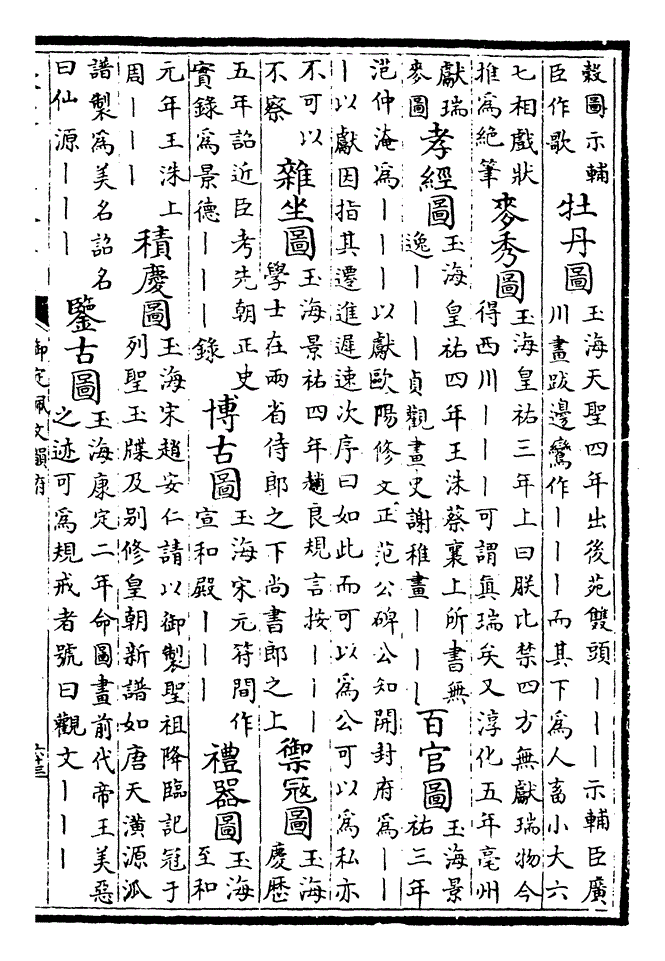 糓圖示輔
臣作歌
牡丹圖
玉海天聖四年出後苑雙頭丨丨丨示輔臣廣
川畫跋邊鸞作丨丨丨而其下為人畜小大六
七相戲狀
推為絕筆
麥秀圖
玉海皇祐三年上曰朕比禁四方無獻瑞物今
得西川丨丨丨可謂真瑞矣又淳化五年亳州
獻瑞
麥圖
孝經圖
玉海皇祐四年王洙蔡襄上所書無
逸丨丨丨貞觀畫史謝稚畫丨丨丨
百官圖
玉海景
祐三年
范仲淹為丨丨丨以獻歐陽修文正范公碑公知開封府為丨
丨以獻因指其遷進遲速次序曰如此而可以為公可以為私亦
不可以
不察
雜坐圖
玉海景祐四年趙良規言按丨丨丨
學士在兩省侍郎之下尚書郎之上
禦冦圖
玉海
慶歷
五年詔近臣考先朝正史
實錄為景德丨丨丨録
博古圖
玉海宋元符間作
宣和殿丨丨丨
禮器圖
玉海
至和
元年王洙上
周丨丨丨
積慶圖
玉海宋趙安仁請以御製聖祖降臨記冠于
列聖玉牒及别修皇朝新譜如唐天潢源派
譜製為美名詔名
曰仙源丨丨丨
鑒古圖
玉海康定二年命圖畫前代帝王美惡
之迹可為規戒者號曰觀文丨丨丨
御定佩文韻府